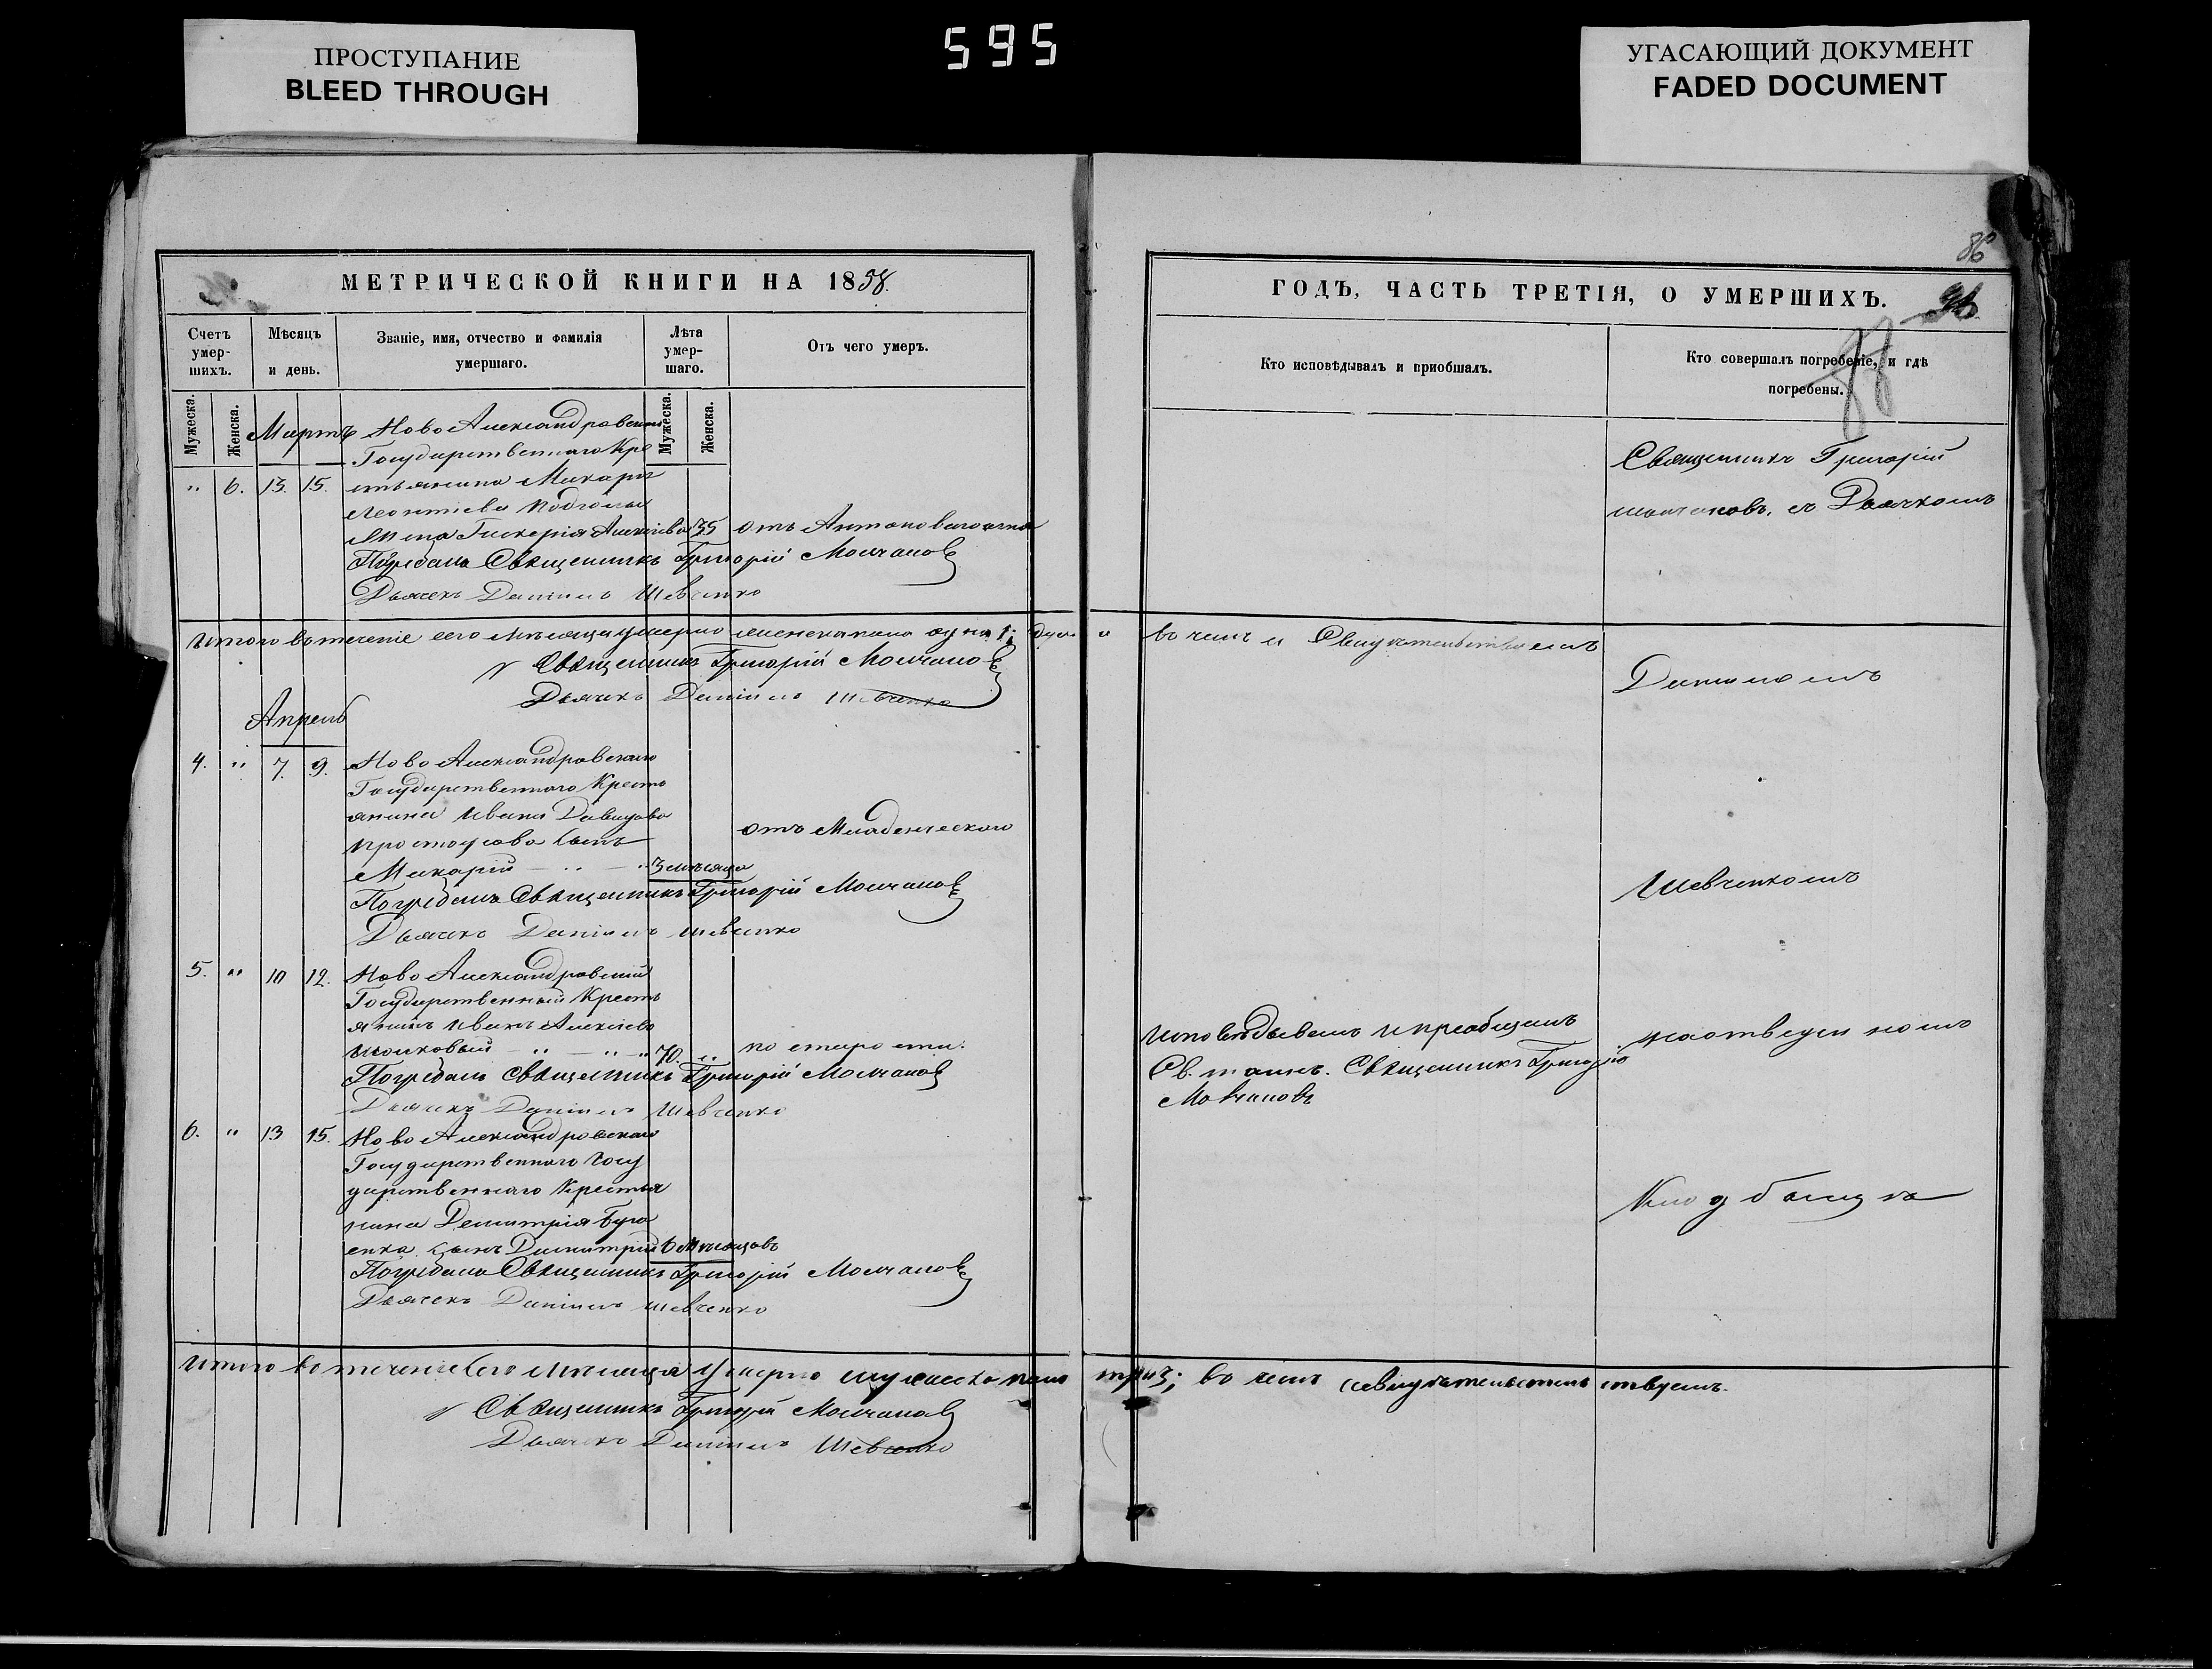 ПРОСТУПАНИЕ
BLEED THROUGH
595
УГАСАЮЩИЙ ДОКУМЕНТ
FADED DOCUMENT
МЕТРИЧЕСКОЙ КНИГИ НА 1858.
Счетъ умер-шихъ.
Мѣсяцъ и день.
Званіе, имя, отчество и фамилія умершаго.
Лѣта умер-шаго.
Отъ чего умеръ.
Мужеска.
Женска.
Мужеска.
Женска.
Мартъ
Ново Александровскаго
Государственнаго Кре
" 6. 13. 15. стьянина Макара
Леонтіева
жена Гликерія Алексіева 35 отъ Антонова огня
Погребалъ Священникъ Григорій Молчановъ
Дьячекъ Даніилъ Шевченко
Итого въ теченіе сего мѣсяца умерло женска пола одна 1;
Священникъ Григорій Молчановъ
Дьячекъ Даніилъ Шевченко
Апрель
4. " 7. 9. Ново Александровскаго
Государственнаго Кресть
янина Ивана Давидова
сынъ
отъ Младенческаго
Макарій 3 мѣсяца
Погребалъ Священникъ Григорій Молчановъ
Дьячекъ Даніилъ Шевченко
5. " 10 12. Ново Александровскій
Государственный Кресть
янинъ Иванъ Алексіевъ
70. " по старости.
Погребалъ Священникъ Григорій Молчановъ
Дьячекъ Даніилъ Шевченко
6. " 13 15. Ново Александровскаго
Государственнаго Госу
дарственнаго Крестья
нина Демитрія Буга
енка сынъ Димитрій 6 мѣсяцовъ
Погребалъ Священникъ Григорій Молчановъ
Дьячекъ Даніилъ Шевченко
Итого въ теченіе сего мѣсяца умерло мужеска пола
Священникъ Григорій Молчановъ
Дьячекъ Даніилъ Шевченко
86
ГОДЪ, ЧАСТЬ ТРЕТІЯ, О УМЕРШИХЪ.
Кто исповѣдывалъ и пріобщалъ.
Кто совершалъ погребеніе, и гдѣ погребены.
Священникъ Григорій
Молчановъ, съ Дьячкомъ
въ чемъ и Свидѣтельствуемъ
Даниломъ
Шевченкомъ
Исповѣдывалъ и преобщалъ
Св. таинъ. Священникъ Григорій
Молчановъ
на отведенномъ
Кладбищѣ
три 3; въ чемъ и свидѣтельствуемъ.